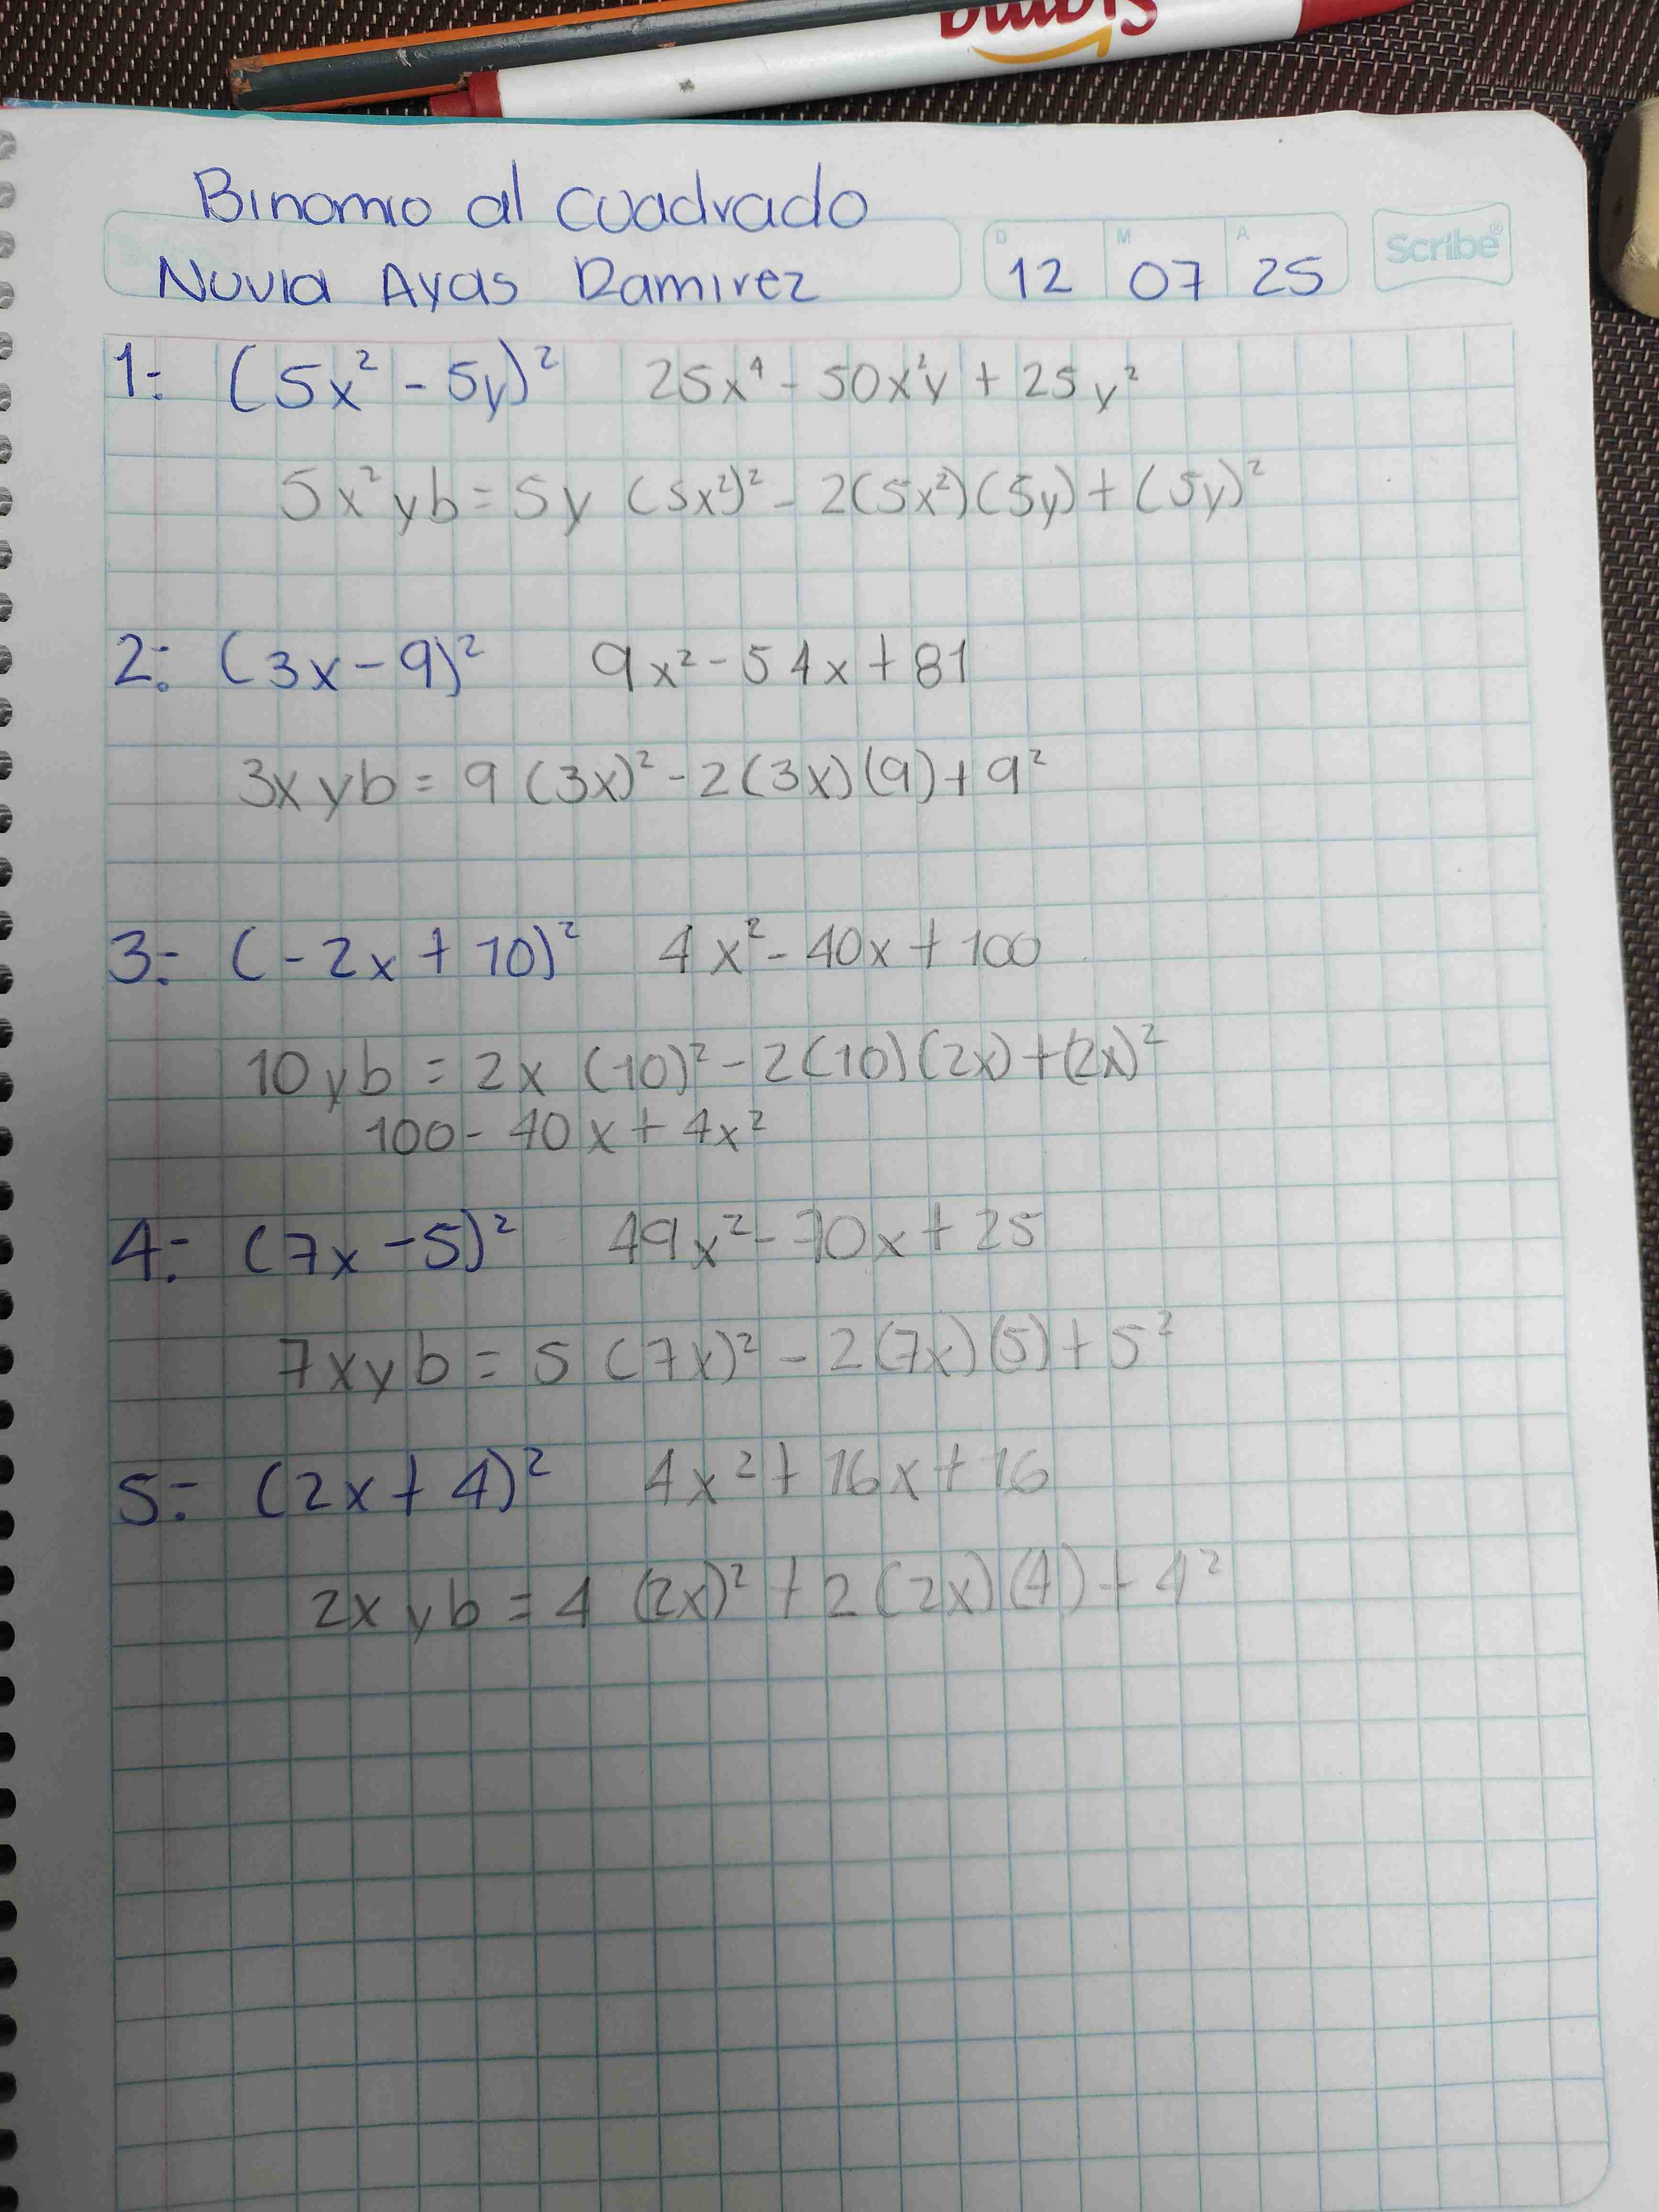 Binomio al cuadrado
D M A
Scribe®
Nuvia Ayas Ramirez 12 07 25
1.- (5x² - 5y)² 25x⁴ - 50x²y + 25y²
5x² y b = 5y (5x²)² - 2(5x²)(5y) + (5y)²
2.- (3x - 9)² 9x² - 54x + 81
3x y b = 9 (3x)² - 2(3x)(9) + 9²
3.- (-2x + 10)² 4x² - 40x + 100
10 y b = 2x (10)² - 2(10)(2x) + (2x)²
100 - 40x + 4x²
4.- (7x - 5)² 49x² - 70x + 25
7x y b = 5 (7x)² - 2(7x)(5) + 5²
5.- (2x + 4)² 4x² + 16x + 16
2x y b = 4 (2x)² + 2(2x)(4) + 4²